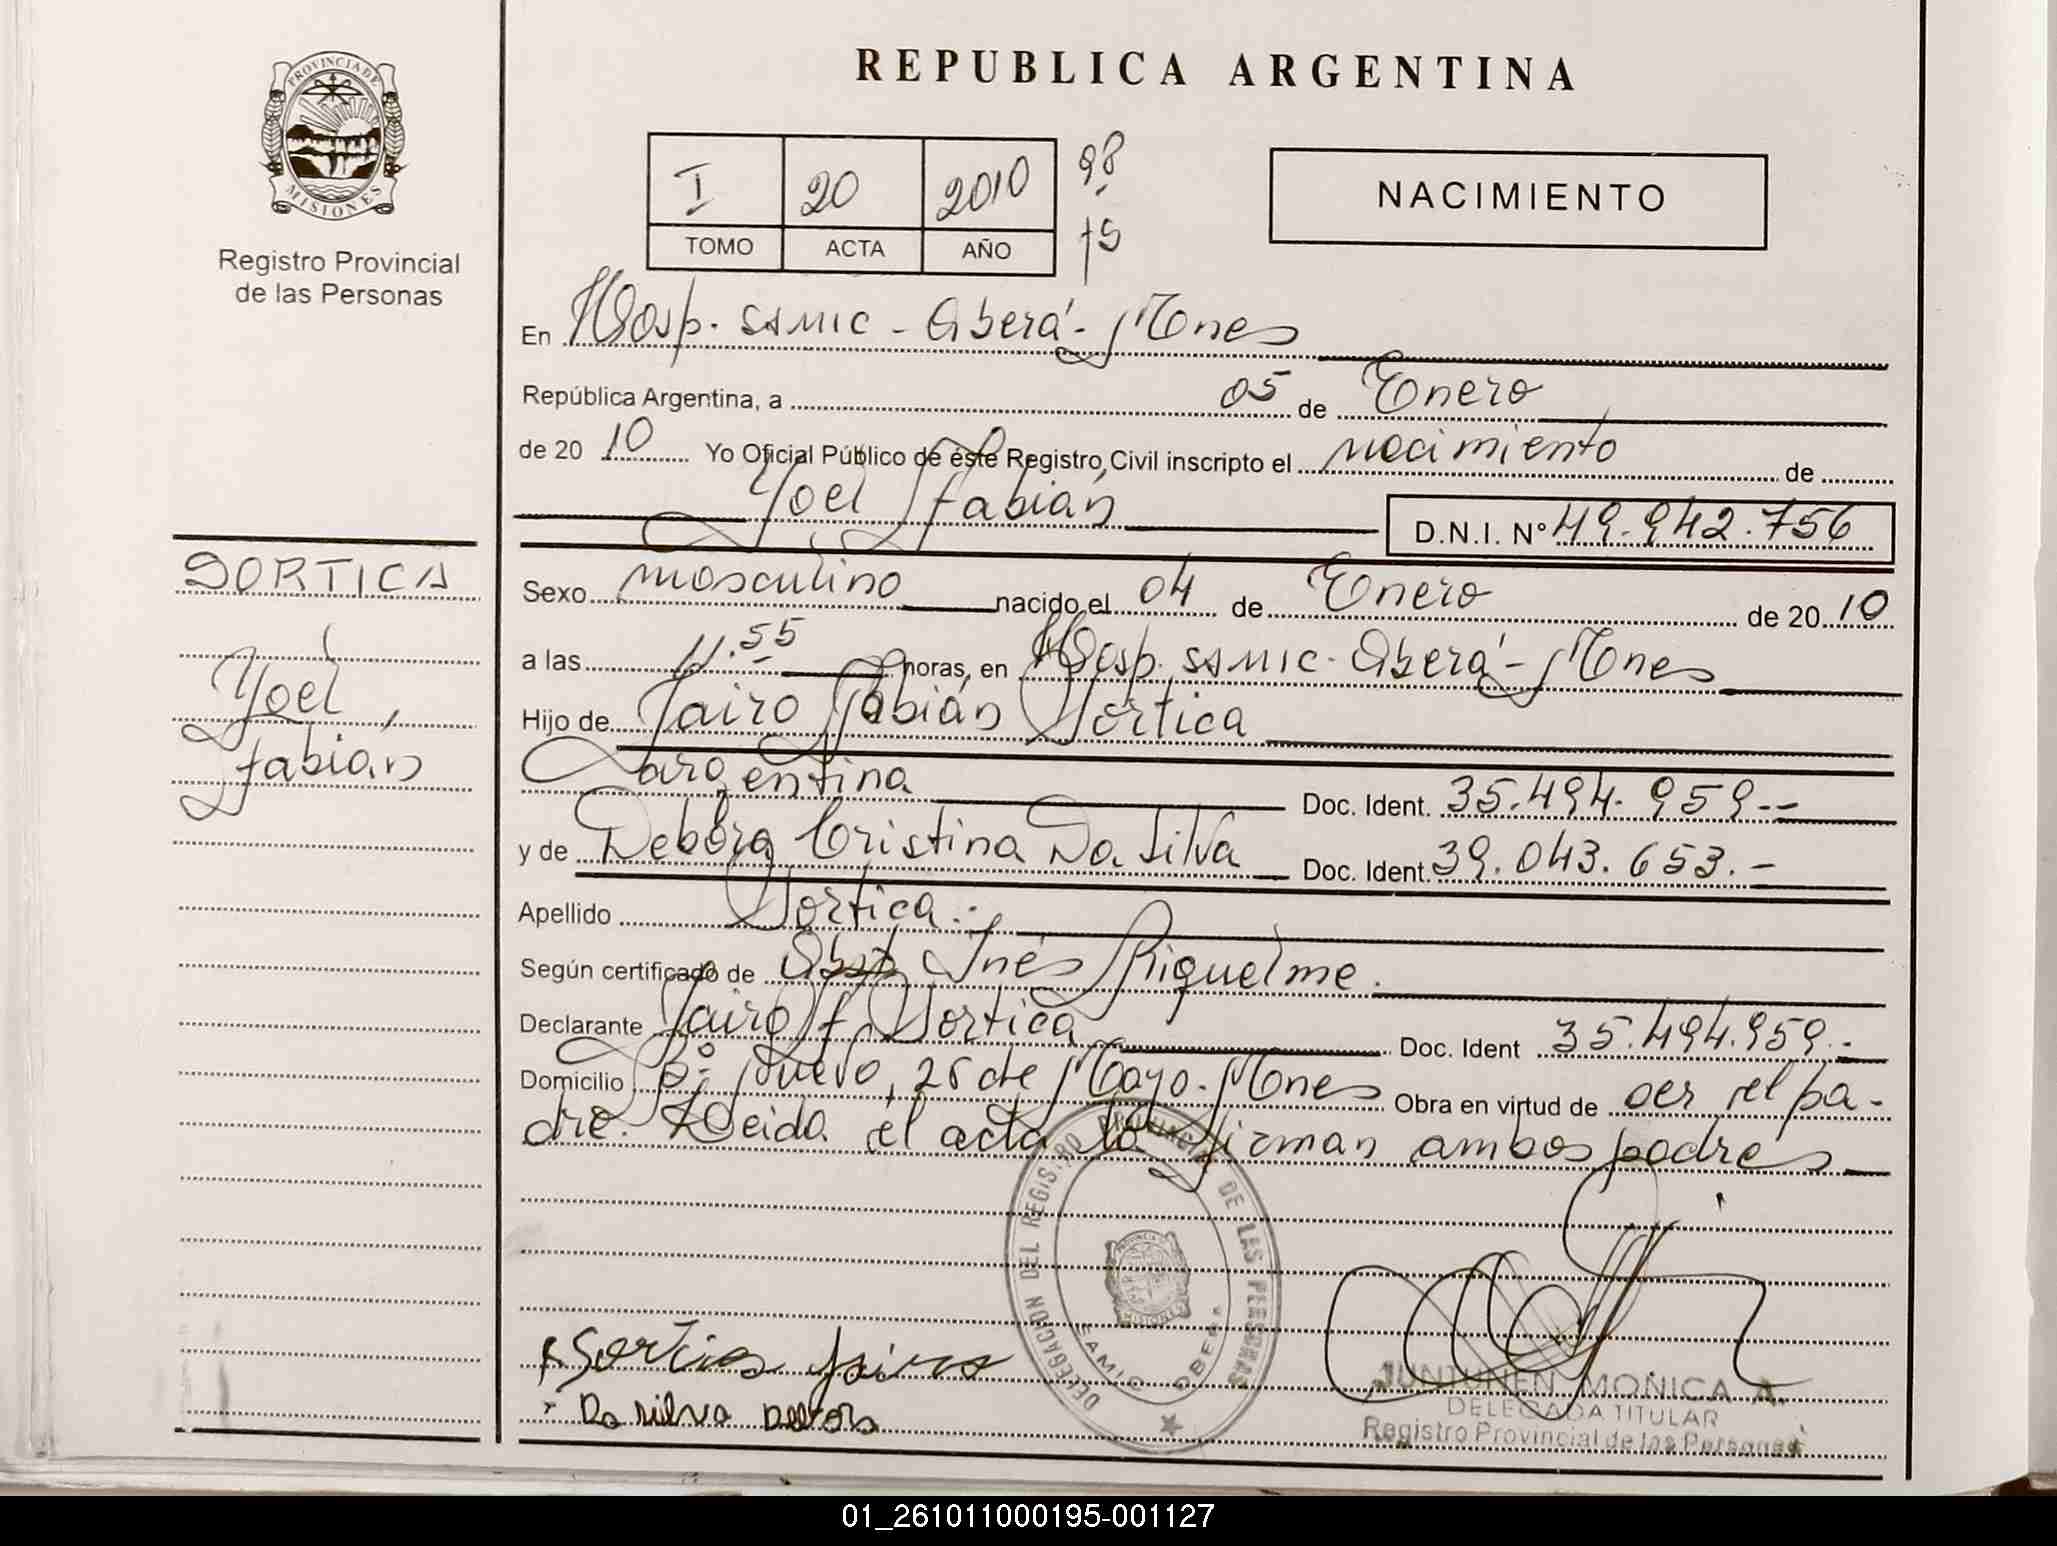 REPUBLICA ARGENTINA
PROVINCIA DE
MISIONES
Registro Provincial
de las Personas
I 20 2010 98
TOMO ACTA AÑO 75
NACIMIENTO
En Hosp. SAMIC - Oberá - Mnes
República Argentina, a 05 de Enero
de 2010 Yo Oficial Público de éste Registro Civil inscripto el nacimiento de
Yoel Fabián D.N.I. Nº 49.942.756
SORTICA
Yoel,
Fabián
Sexo masculino nacido el 04 de Enero de 2010
a las 11.55 horas, en Hosp. SAMIC - Oberá - Mnes
Hijo de Jairo Fabián Sortica
Argentina Doc. Ident. 35.494.959.--
y de Debora Cristina Da Silva Doc. Ident. 39.043.653.-
Apellido Sortica.-
Según certificado de Obst. Inés Riquelme.
Declarante Jairo F. Sortica Doc. Ident 35.494.959.-
Domicilio Bº Nuevo, 25 de Mayo - Mnes Obra en virtud de ser el pa-
dre. Leida el acta la firman ambos padres
DELEGACION DEL REGISTRO PROVINCIAL DE LAS PERSONAS
SAMIC OBERA
Sortica Jairo
Da silva Debora
JUNTUNEN MONICA A.
DELEGADA TITULAR
Registro Provincial de las Personas
01_261011000195-001127